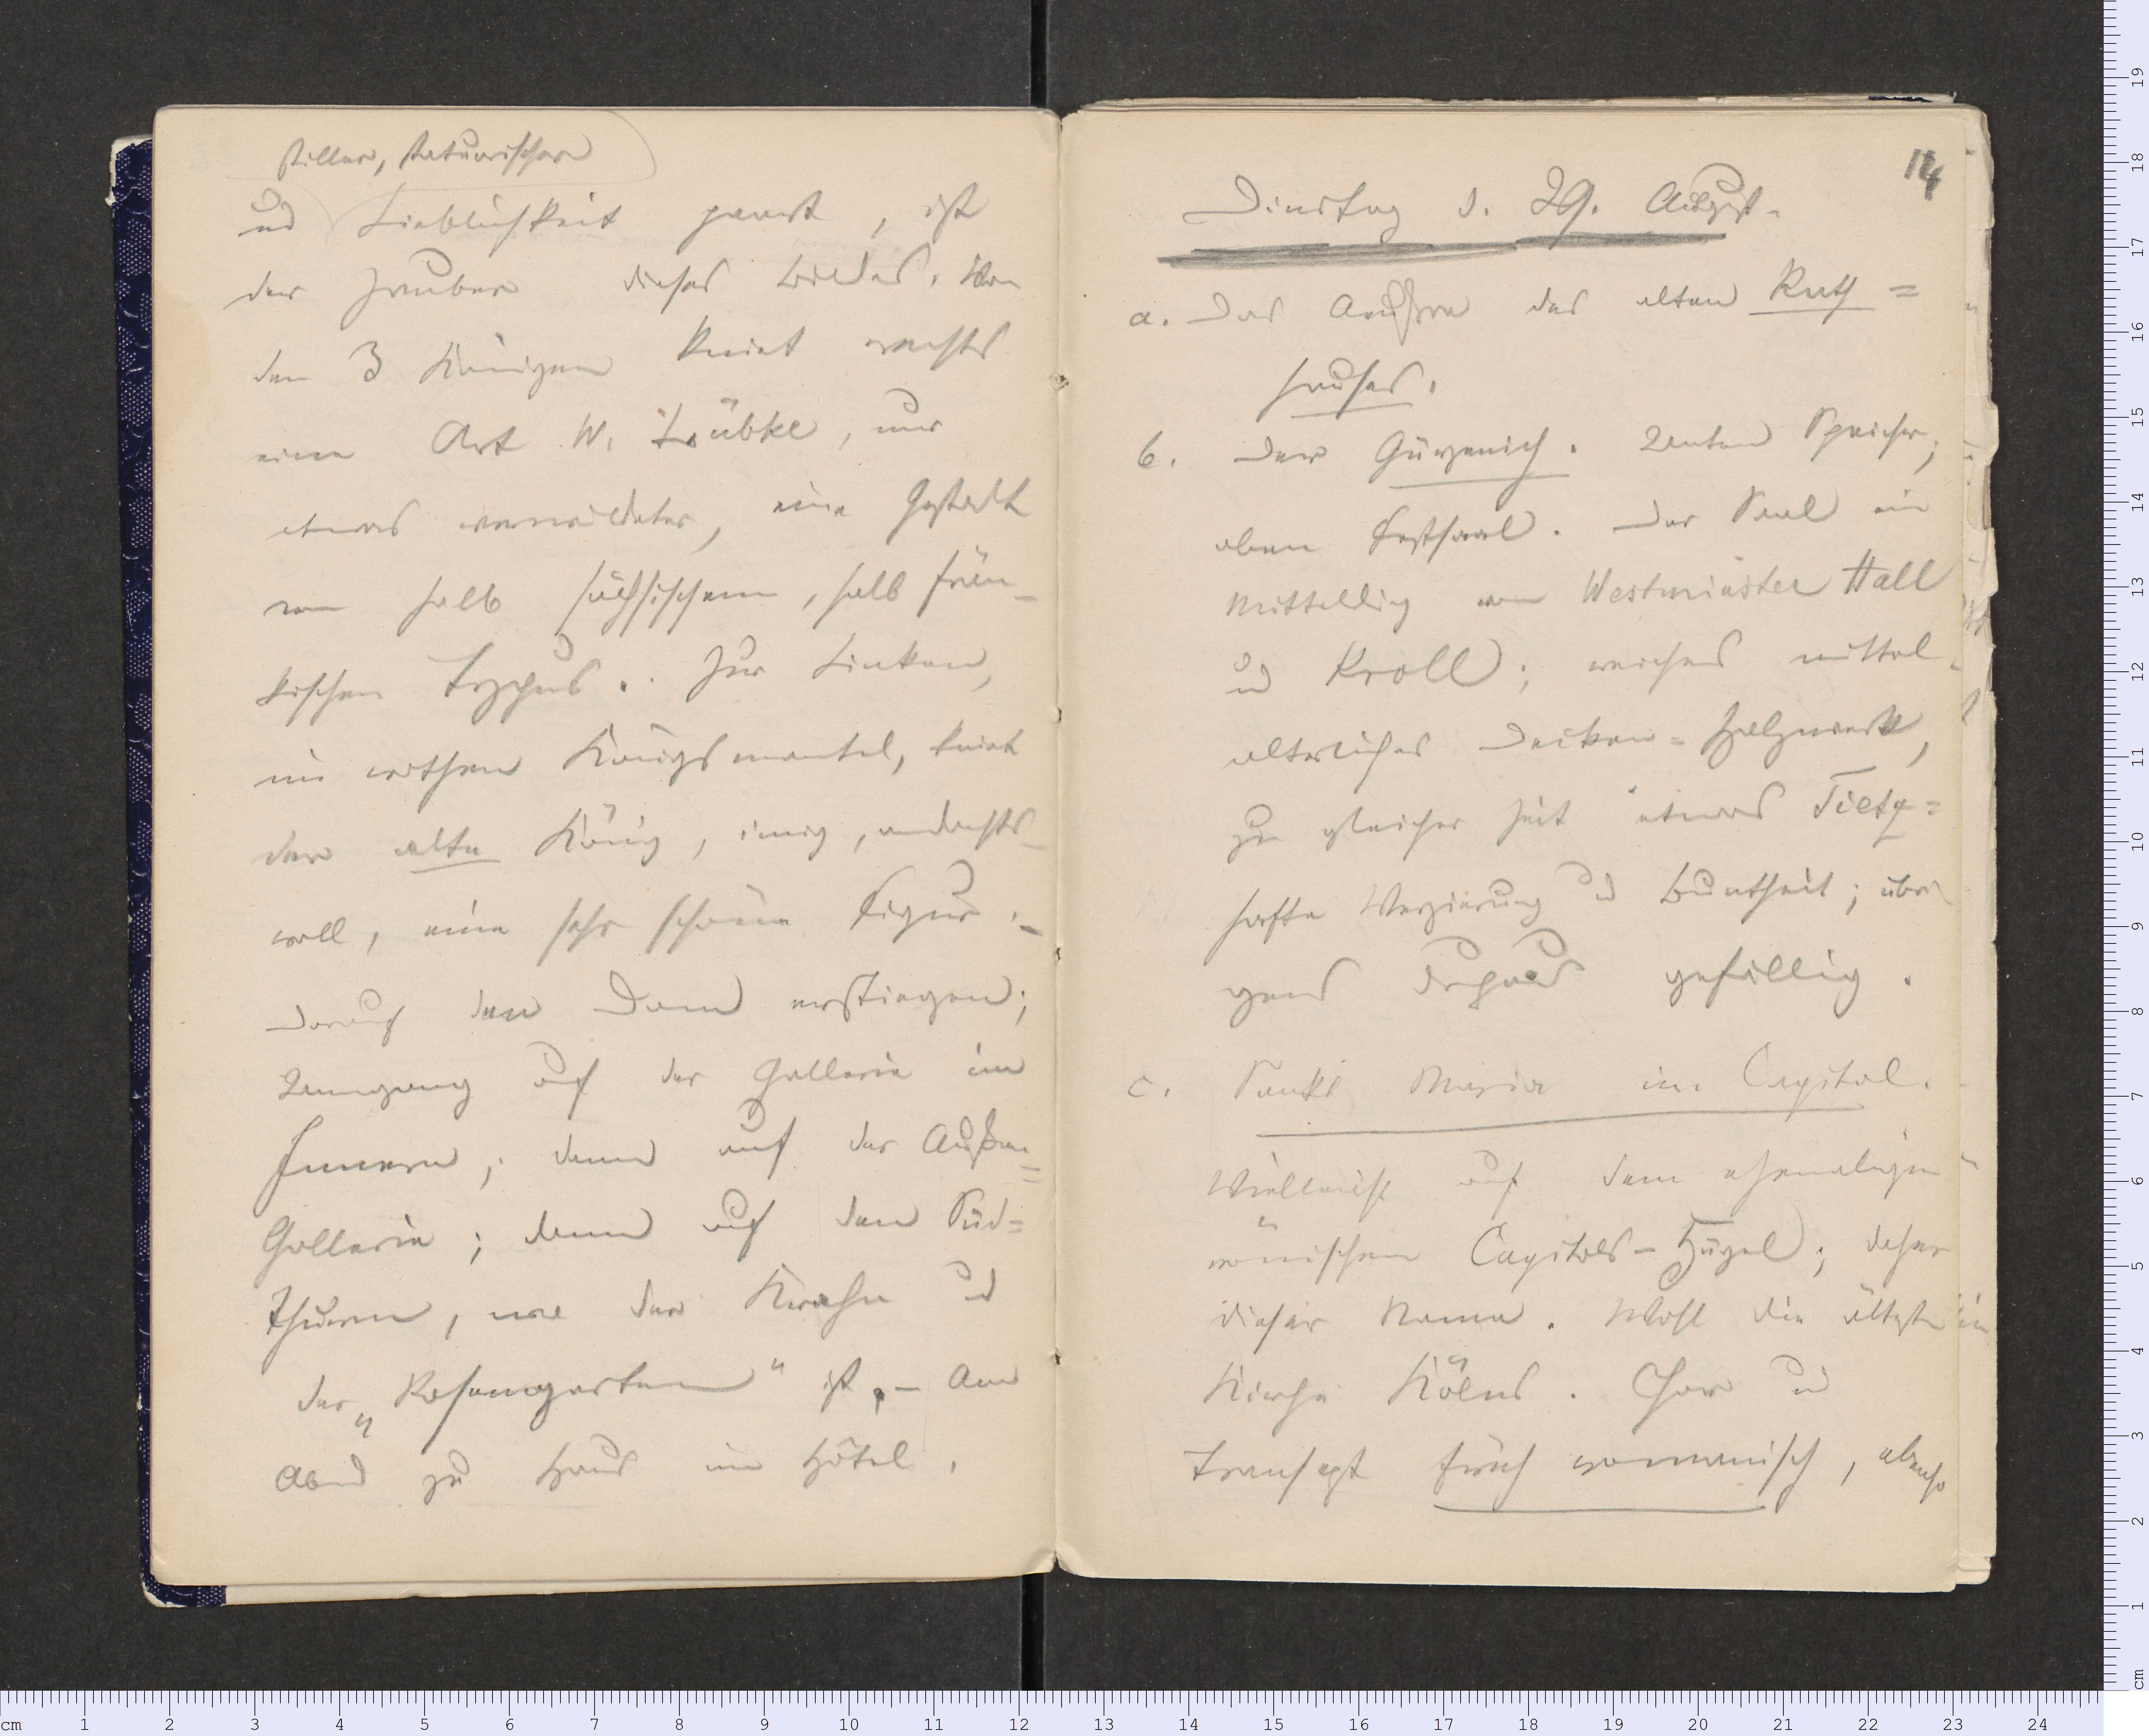 stiller, statuarischer
und Lieblichkeit paart, ist
der Zauber dieses Bildes. Von
den 3 Königen kniet rechts
eine Art W. Lübke, nur
etwas verwildeter, eine Gestalt
von halb sächsischem, halb frän-
kischen Typus. Zur Linken,
im rothen Königsmantel, kniet
der alte König, innig, andachts-
voll, eine sehr schöne Figur. –
Darauf den Dom erstiegen;
Rumgang auf der Gallerie im
Innern; dann auf der Außen-
Gallerie; dann auf den Süd-
thurm, wo der Krahn und
der „Rosengarten" ist. – Am
Abend zu Haus im Hôtel.
14
Dinstag d. 29. August.
a. Das Aeußre des alten Rath=
hauses.
b. Der Gürzenich. Unten Speicher;
oben Festsaal. Der Saal ein
Mittelding von Westminster Hall
und Kroll; reiches mittel-
alterliches Decken=Holzwerk,
zu gleicher Zeit etwas Tietz=
hafte Verzierung und Buntheit; übri
gens durchaus gefällig.
c. Sankt Maria im Capitol.
Vielleicht auf dem ehemaligen
römischen Capitols-Hügel; daher
dieser Name. Wohl die älteste
Kirche Kölns. Chor und
Transept früh romanisch, ebenso